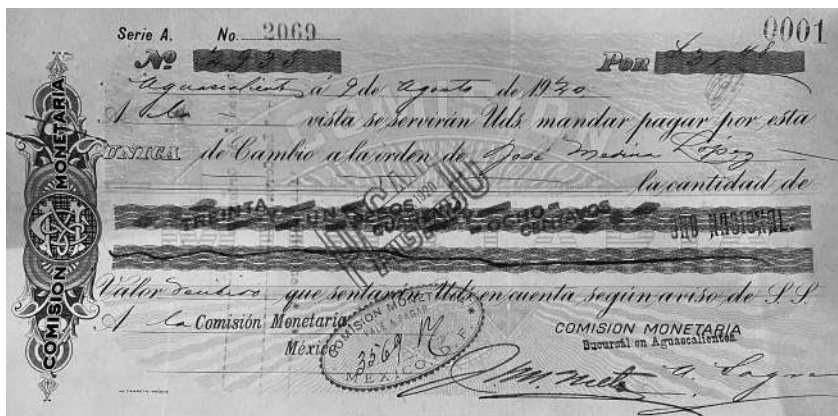 Serie A. No. 2069 0001
Nº 2935 POR $31.48
Aguascalientes á 9 de Agosto de 1920
A la vista se servirán Uds. mandar pagar por esta
UNICA de Cambio a la orden de José Medina López
la cantidad de
TREINTA Y UN PESOS CUARENTA Y OCHO CENTAVOS ORO NACIONAL.
Valor recibido que sentarán Uds. en cuenta según aviso de S.S.
A la Comisión Monetaria
México
COMISION MONETARIA
VALE A PAGAR
3569
MEXICO, D.F.
COMISION MONETARIA
Sucursal en Aguascalientes
COMISION MONETARIA